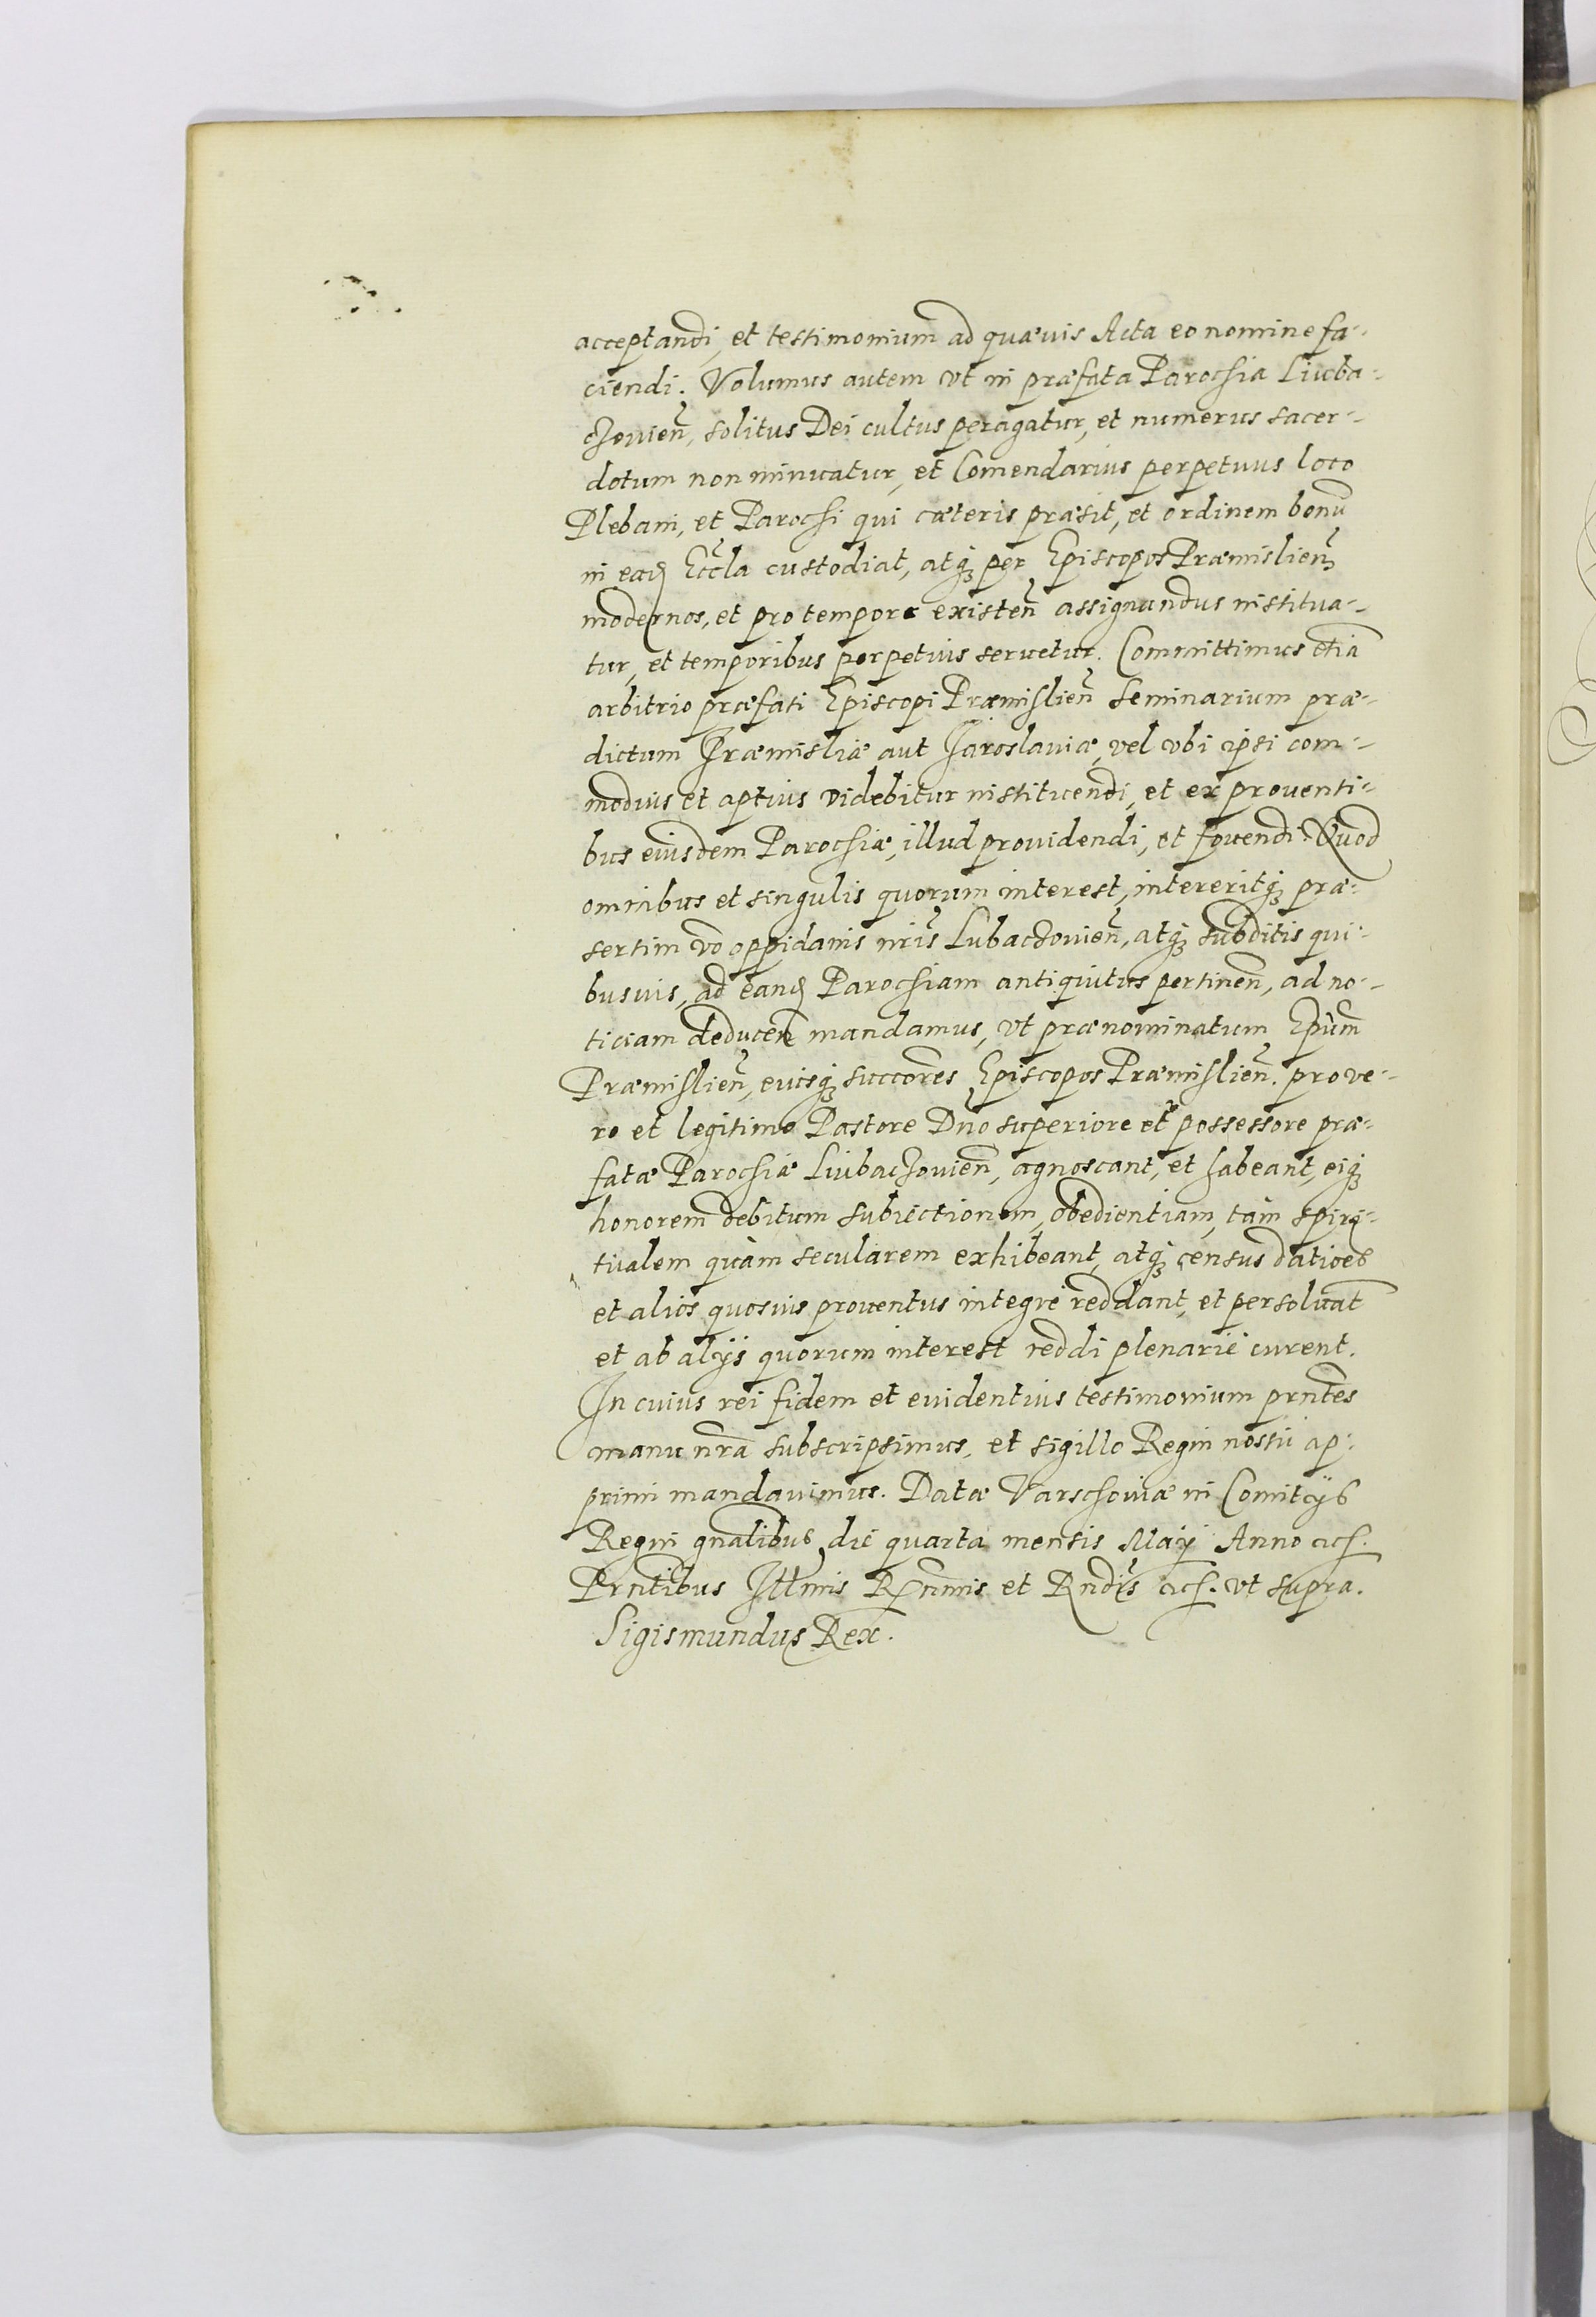 acceptandi, et testimonium ad quævis Acta eo nomine fa-
ciendi. Volumus autem vt in præfata Parochia Liuba-
choviên, solitus Dei cultus peragatur, et numerus sacer-
dotum non minuatur, et Comendarius perpetuus loco
Plebani, et Parochi qui cæteris præsit, et ordinem bonū
in eadē Eccla custodiat, atq₃ per Episcopos Præmislien̄
modernos, et pro tempore existen̄ assignandus institua-
tur, et temporibus perpetuis seruetur. Committimus etiā
arbitrio præfati Episcopi Præmislien̄ Seminarium præ-
dictum Præmisliæ aut Jaroslauiæ, vel vbi ipsi com-
modius et aptius videbitur instituendi, et ex prouenti-
bus eiusdem Parochiæ, illud prouidendi, et fouendi. Quod
omnibus et singulis quorum interest, intereritq₃ præ-
sertim vo oppidanis nris Lubachouien̄, atq₃ subditis qui-
busuis, ad eandē Parochiam antiquitus pertinen̄, ad no-
ticiam deducen̄ mandamus, vt prænominatum Epūm
Præmislien̄, eiusq₃ succores Episcopos Præmislien̄. pro ve-
ro et legitimo Pastore Dno superiore et possessore præ-
fatæ Parochiæ Liubachouien̄, agnoscant, et habeant, eiq₃
honorem debitum subiectionem, obedientiam, tàm spiri-
tualem quàm secularem exhibeant, atq₃ census datioēs
et alios quosuis prouentus integrè reddant, et persoluāt
et ab alijs quorum interest reddi plenariè curent.
In cuius rei fidem et euidentius testimonium prntes
manu nrā subscripsimus, et sigillo Regni nostri ap-
primi mandauimus. Datæ Varschouiæ in Comitijs
Regni gnalibus, die quarta mensis Maij Anno ach.
Prntibus Illmis Rnmis et Rndis ach. vt supra.
Sigismundus Rex.